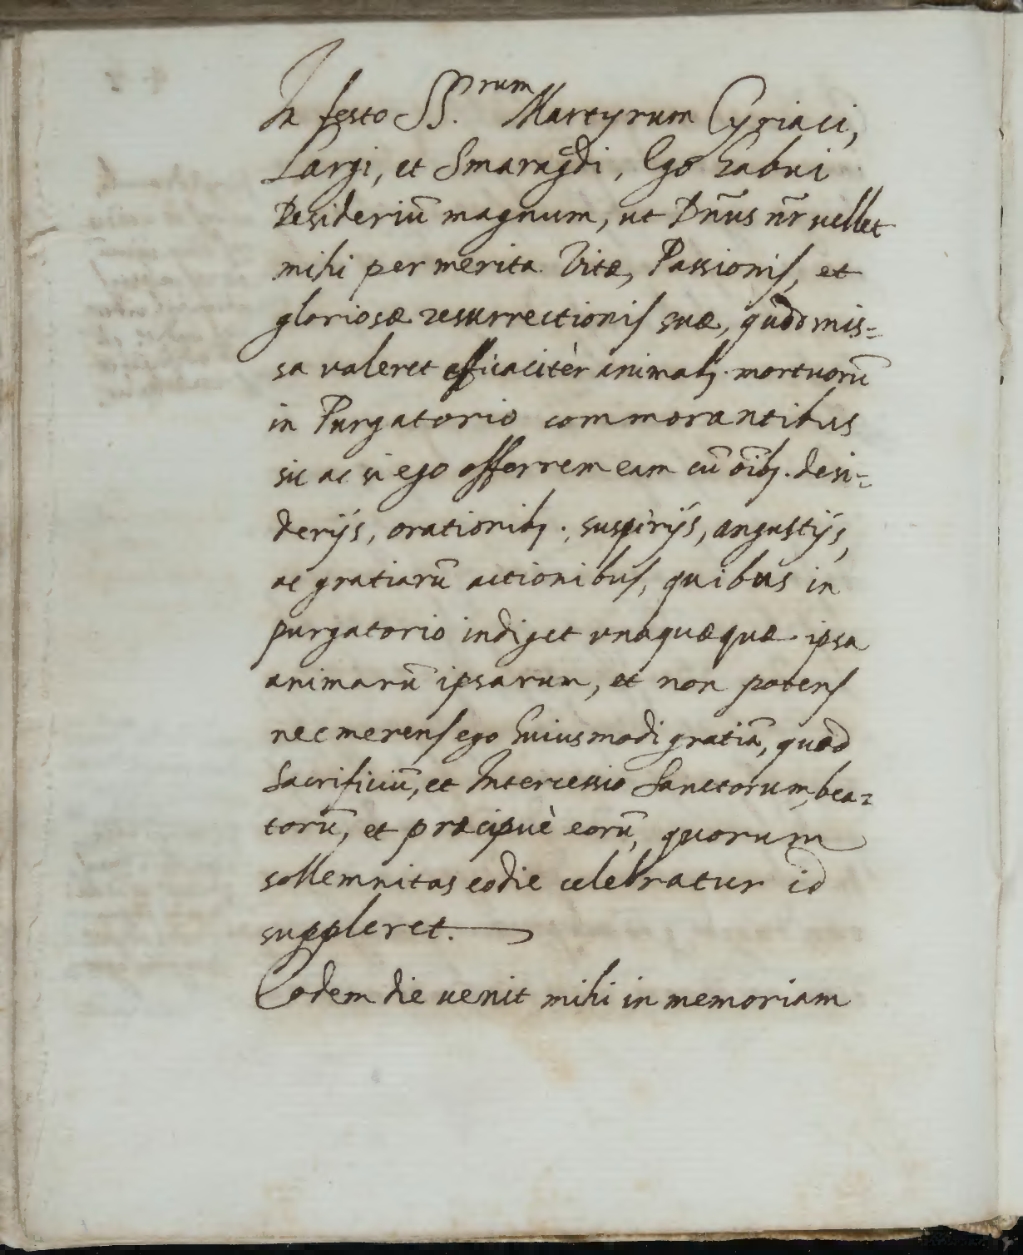 In festo SS.rum Martyrum Cyriaci,
Largi, et Smaragdi, Ego habui
Desideriū magnum, ut Dn̄us nr̄ vellet
mihi per merita Vitæ, Passionis, et
gloriosæ resurrectionis suæ, quòd mis=
sa valeret efficacitèr animabꝫ. mortuorū
in Purgatorio commorantibus
sic ac si ego offerrem eam cū oīb. desi=
derijs, orationibꝫ., suspirijs, angustijs,
ac gratiarū actionibus, quibus in
purgatorio indiget vnaquæquæ ipsa
animarū ipsarum, et non potens
nec merens ego huiusmodi gratiā, quod
Sacrificiū, et Intercessio Sanctorum, bea=
torū, et præcipuè eorū, quorum
sollemnitas eodie celebratur id
suppleret.
Eodem die uenit mihi in memoriam